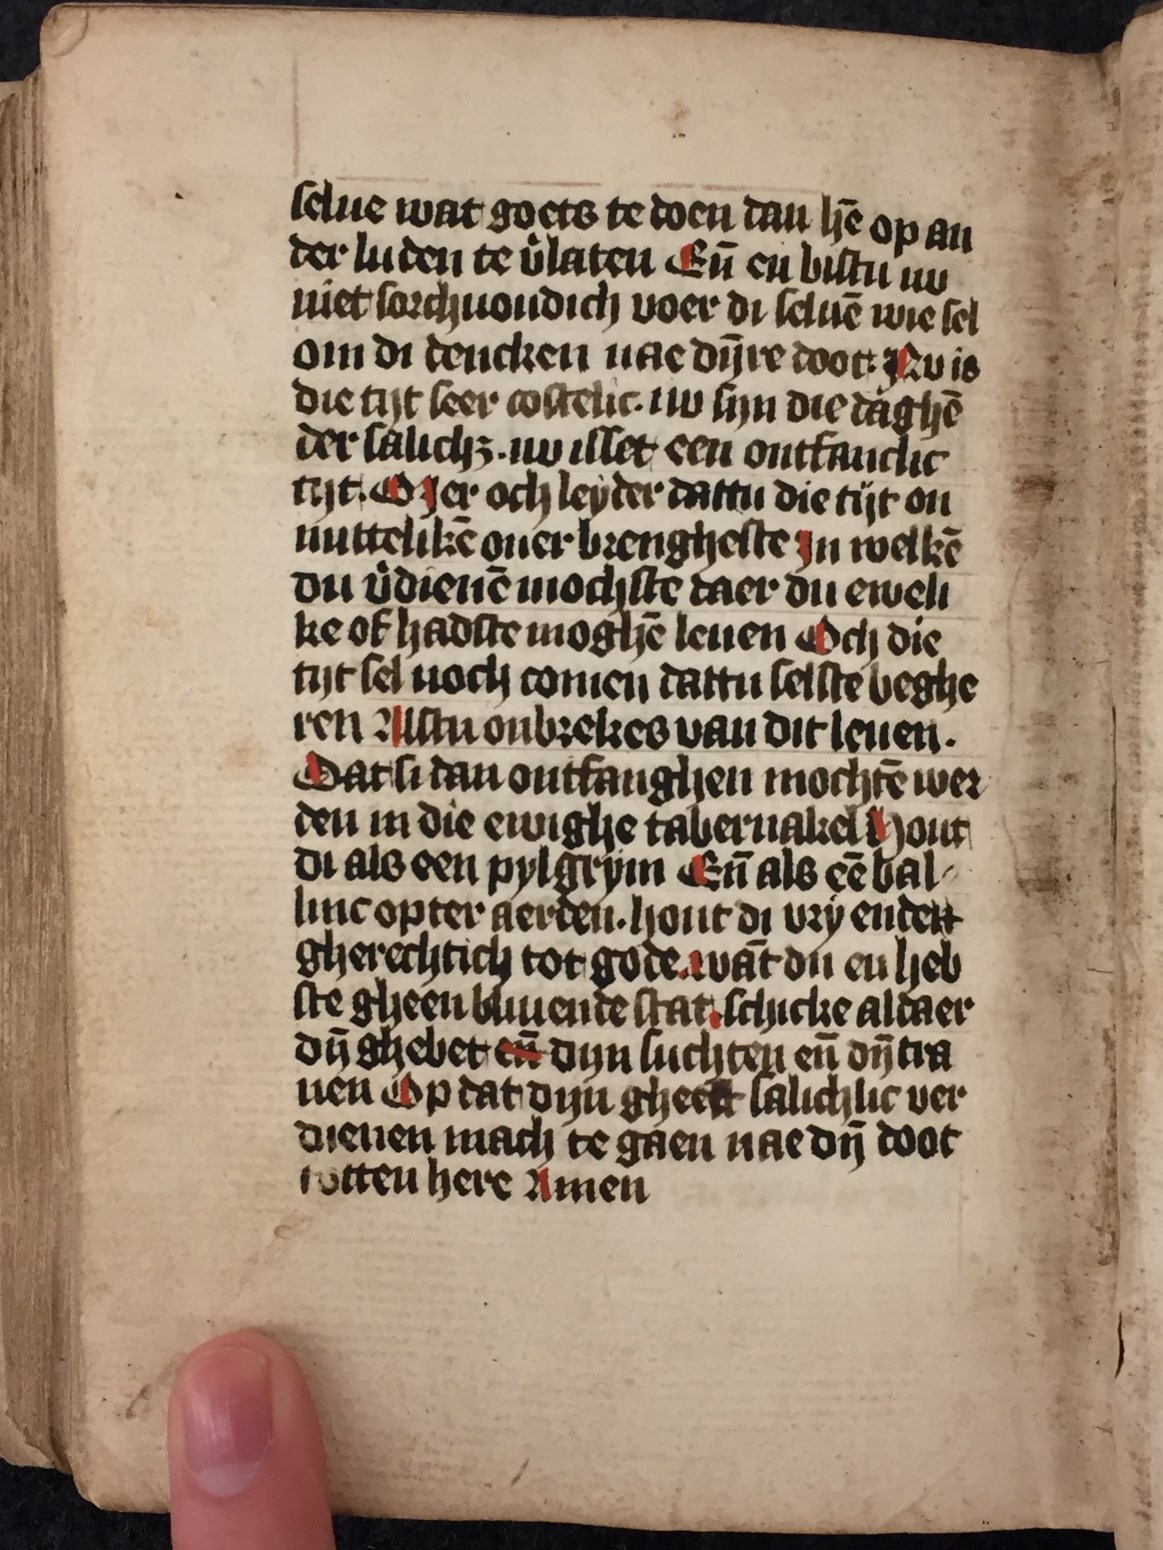 selue wat goets te doen dan hē op an
der luden te v̉laten Eñ en bistu nv
niet sorchuoudich voer di seluē wie sel
om di dencken nae dȳre doot: Nv is
die tijt seer costelic. nv sijn die daghē
der salichꝫ. nv isset een ontfanclic
tijt. Mer och leyder dattu die tijt on
nuttelikē ouer brengheste In welkē
du v̉dienē mochste daer du eweli
ke of hadste moghē leuen Och die
tijt sel noch comen dattu selste beghe
ren Alstu onbrekes van dit leuen.
Dat si dan ontfanghen mochtē wer
den in die ewighe tabernakel Hout
di als een pylgrym Eñ als eē bal-
linc opter aerden. hout di vry enden
gherechtich tot gode. wāt du en heb
ste gheen bliuende stat. schicke aldaer
dȳ ghebet eñ dijn suchten eñ dȳ tra
nen Op dat dijn gheest salichlic ver
dienen mach te gaen nae dȳ doot
totten here Amen